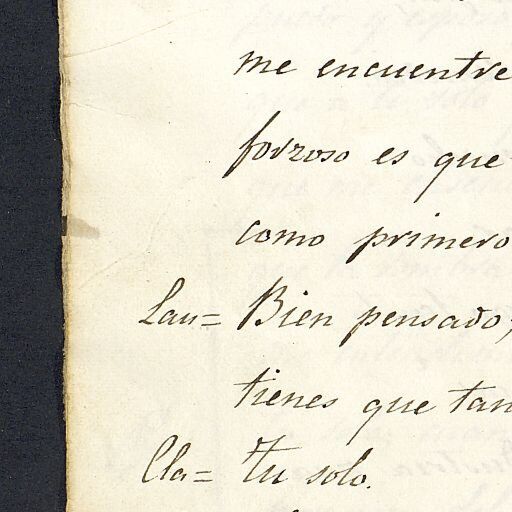 me encuentre
forzoso es que
como primero
Lau= Bien pensado;
tienes que tan
Cla= tu solo.